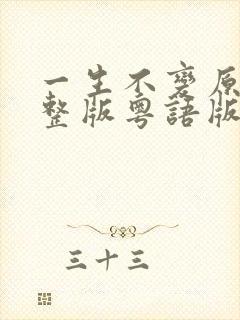 一生不變原
整版粵語版
三十三